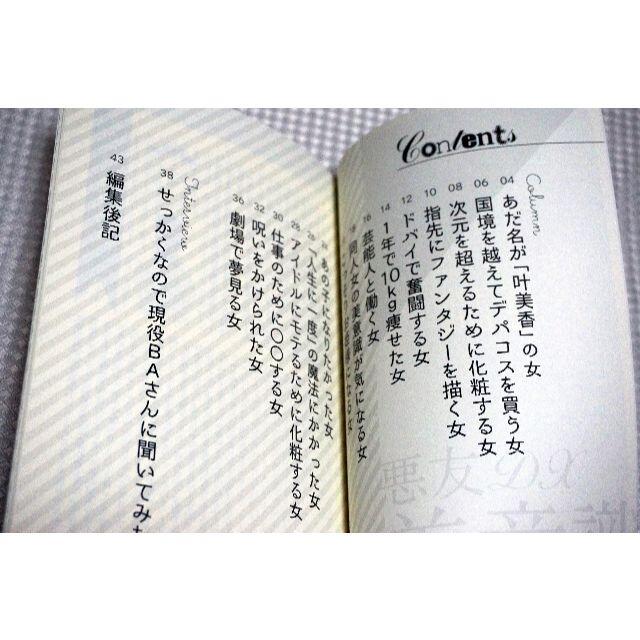 Contents
Column
04 あだ名が「叶美香」の女
06 国境を越えてデパコスを買う女
08 次元を超えるために化粧する女
10 指先にファンタジーを描く女
12 ドバイで奮闘する女
14 1年で10kg痩せた女
16 芸能人と働く女
18 同人女の美意識が気になる女
る女
あの子になりたかった女
26 「人生に一度」の魔法にかかった女
28 アイドルにモテるために化粧する女
30 仕事のために〇〇する女
32 呪いをかけられた女
36 劇場で夢見る女
Interview
38 せっかくなので現役BAさんに聞いてみ
43 編集後記
悪友DX
美意識